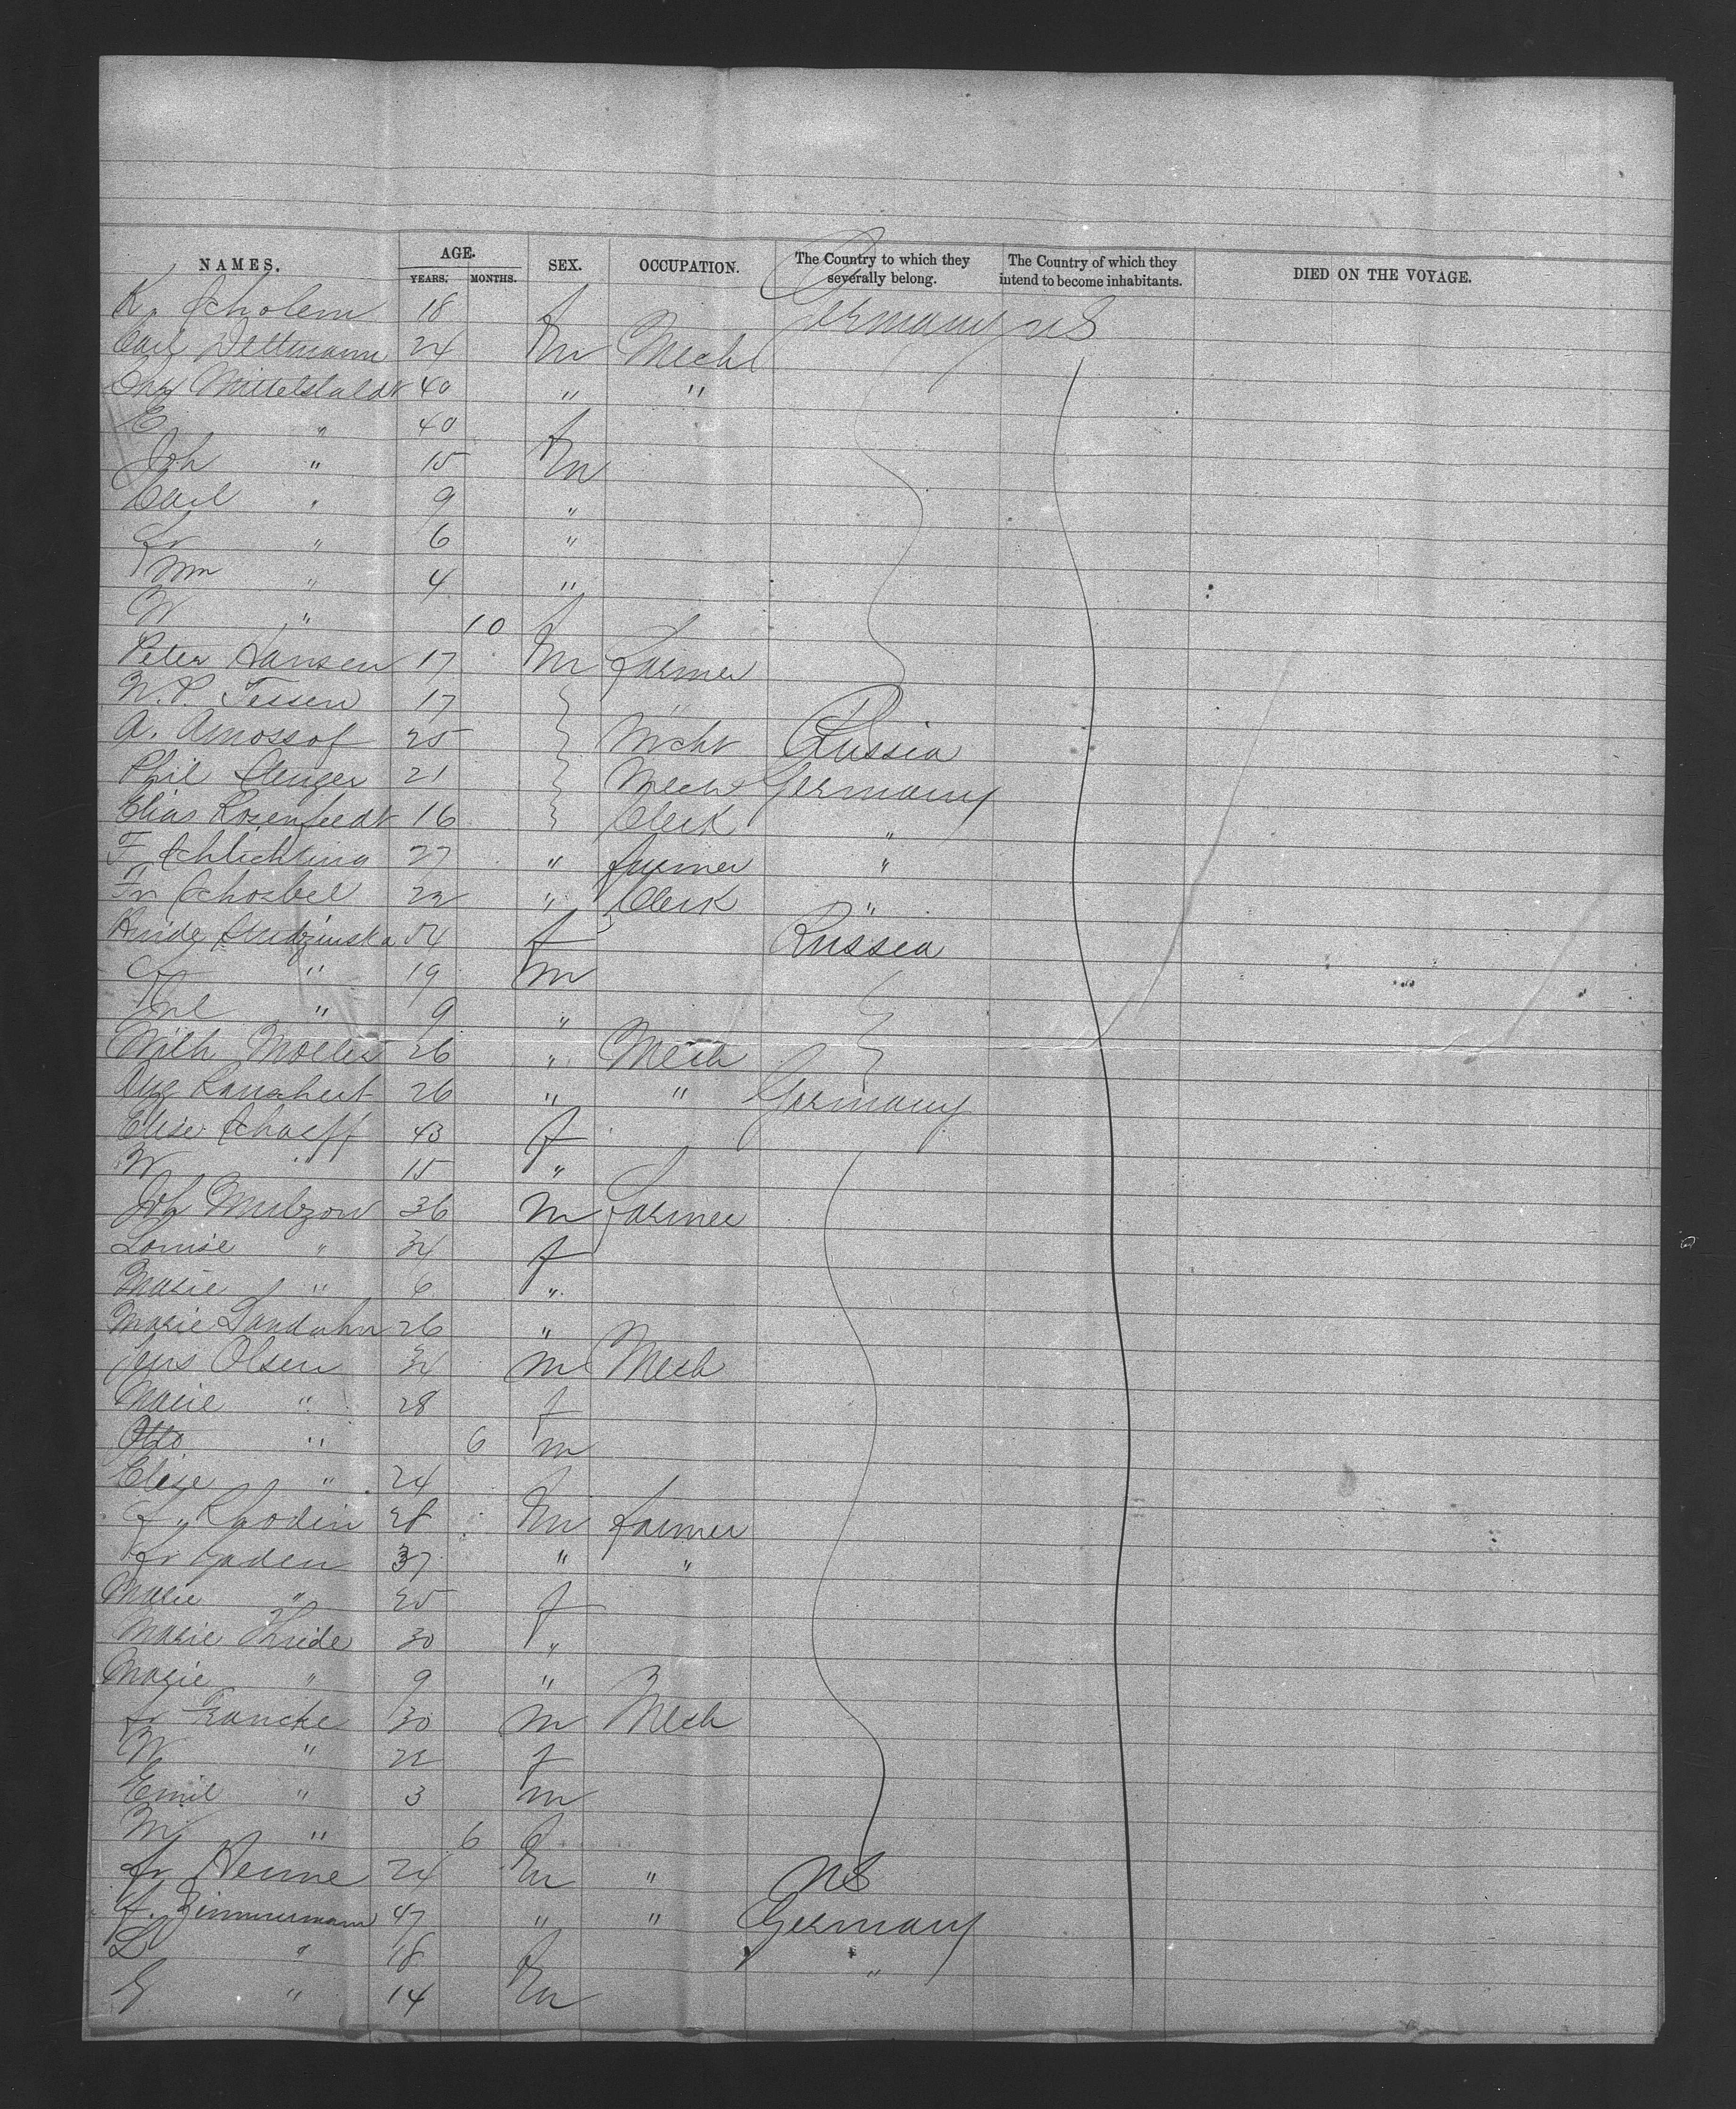 NAMES. AGE. YEARS. MONTHS. SEX. OCCUPATION. The Country to which they severally belong. The Country of which they intend to become inhabitants. DIED ON THE VOYAGE.
K. Scholem 18 f Germany US
Carl Dettmann 24 m Mech
Chs Mittelstaldt 40 " "
E " 40 f
Joh " 15 m
Carl " 9 "
Fr " 6 "
Wm " 4 "
W " 10 f
Peter Hansen 17 m Farmer
N.P. Tessen 17 "
A. Amossof 25 Mcht Russia
Phil Stenger 21 Mech Germany
Elias Rosenfeldt 16 Clerk "
F. Schlichting 27 " farmer "
Fr Schosbel 22 " Clerk "
54 f Russia
" 19 m
" 9 "
Wilh Moeller 26 " Mech
Aug 26 " " Germany
Elise Schaeff 43 f
W " 15 "
Joh 36 m Farmer
Louise " 34 f
Marie " 6 "
Marie Sandahn 26 "
Jens Olsen 34 m Mech
Marie " 28 f
Otto " 6 m
Elise " 24
F. Rhodin 28 m Farmer
Fr Gaden 37 " "
Marie " 25 f
Marie Thiede 30 "
Marie " 9 "
Fr Francke 30 m Mech
W " 22 f
Emil " 3 m
M " 6 f
Fr Henne 24 m " US
F. Zimmermann 47 " " Germany
L " 18 f "
G " 14 m